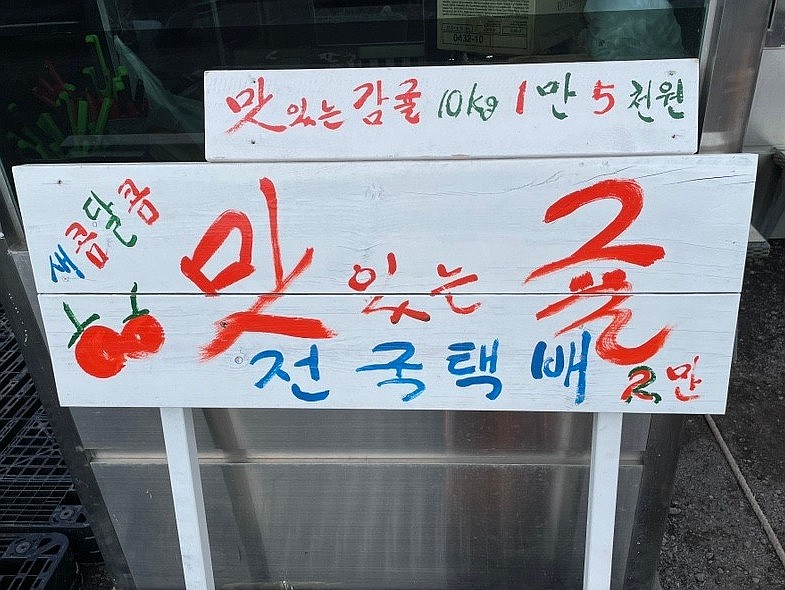 0432-10
맛있는 감귤 10kg 1만 5천원
새콤달콤
맛있는 귤
전국택배 2만